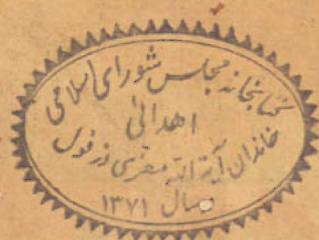 کتابخانه مجلس شورای اسلامی
اهدائی
خاندان آیة الله معزی دزفولی
سال ۱۳۷۱